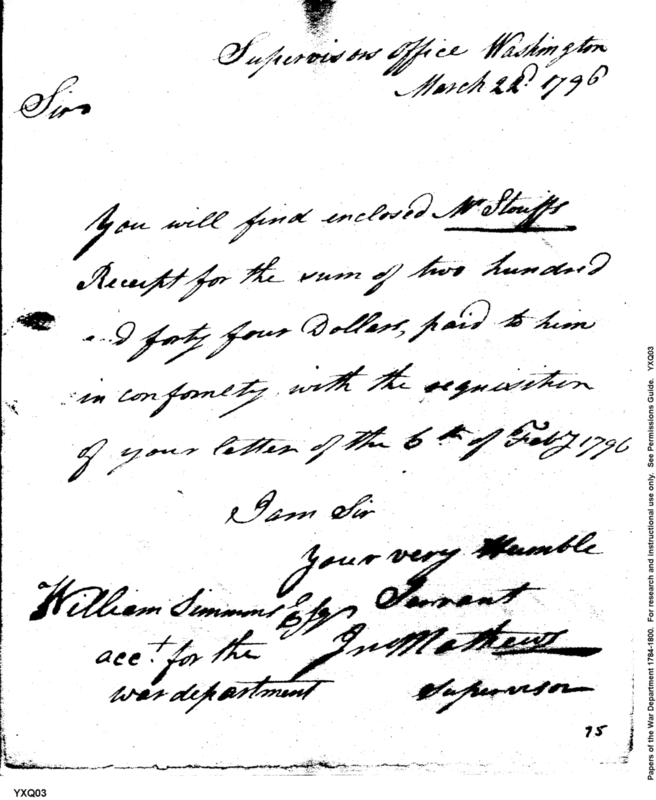 Supervisors office Washington
March 22d. 1796
Sir
You will find enclosed Mr. Stouffs
Receipt for the sum of two hundred
and forty four Dollars, paid to him
in conformety with the requisition
of your letter of the 6th of Feby 1796
I am Sir
your very Humble
Servant
Jno Mathews
Supervisor
William Simmons Esqr
acct. for the
war department
75
YXQ03
Papers of the War Department 1784-1800. For research and instructional use only. See Permissions Guide. YXQ03